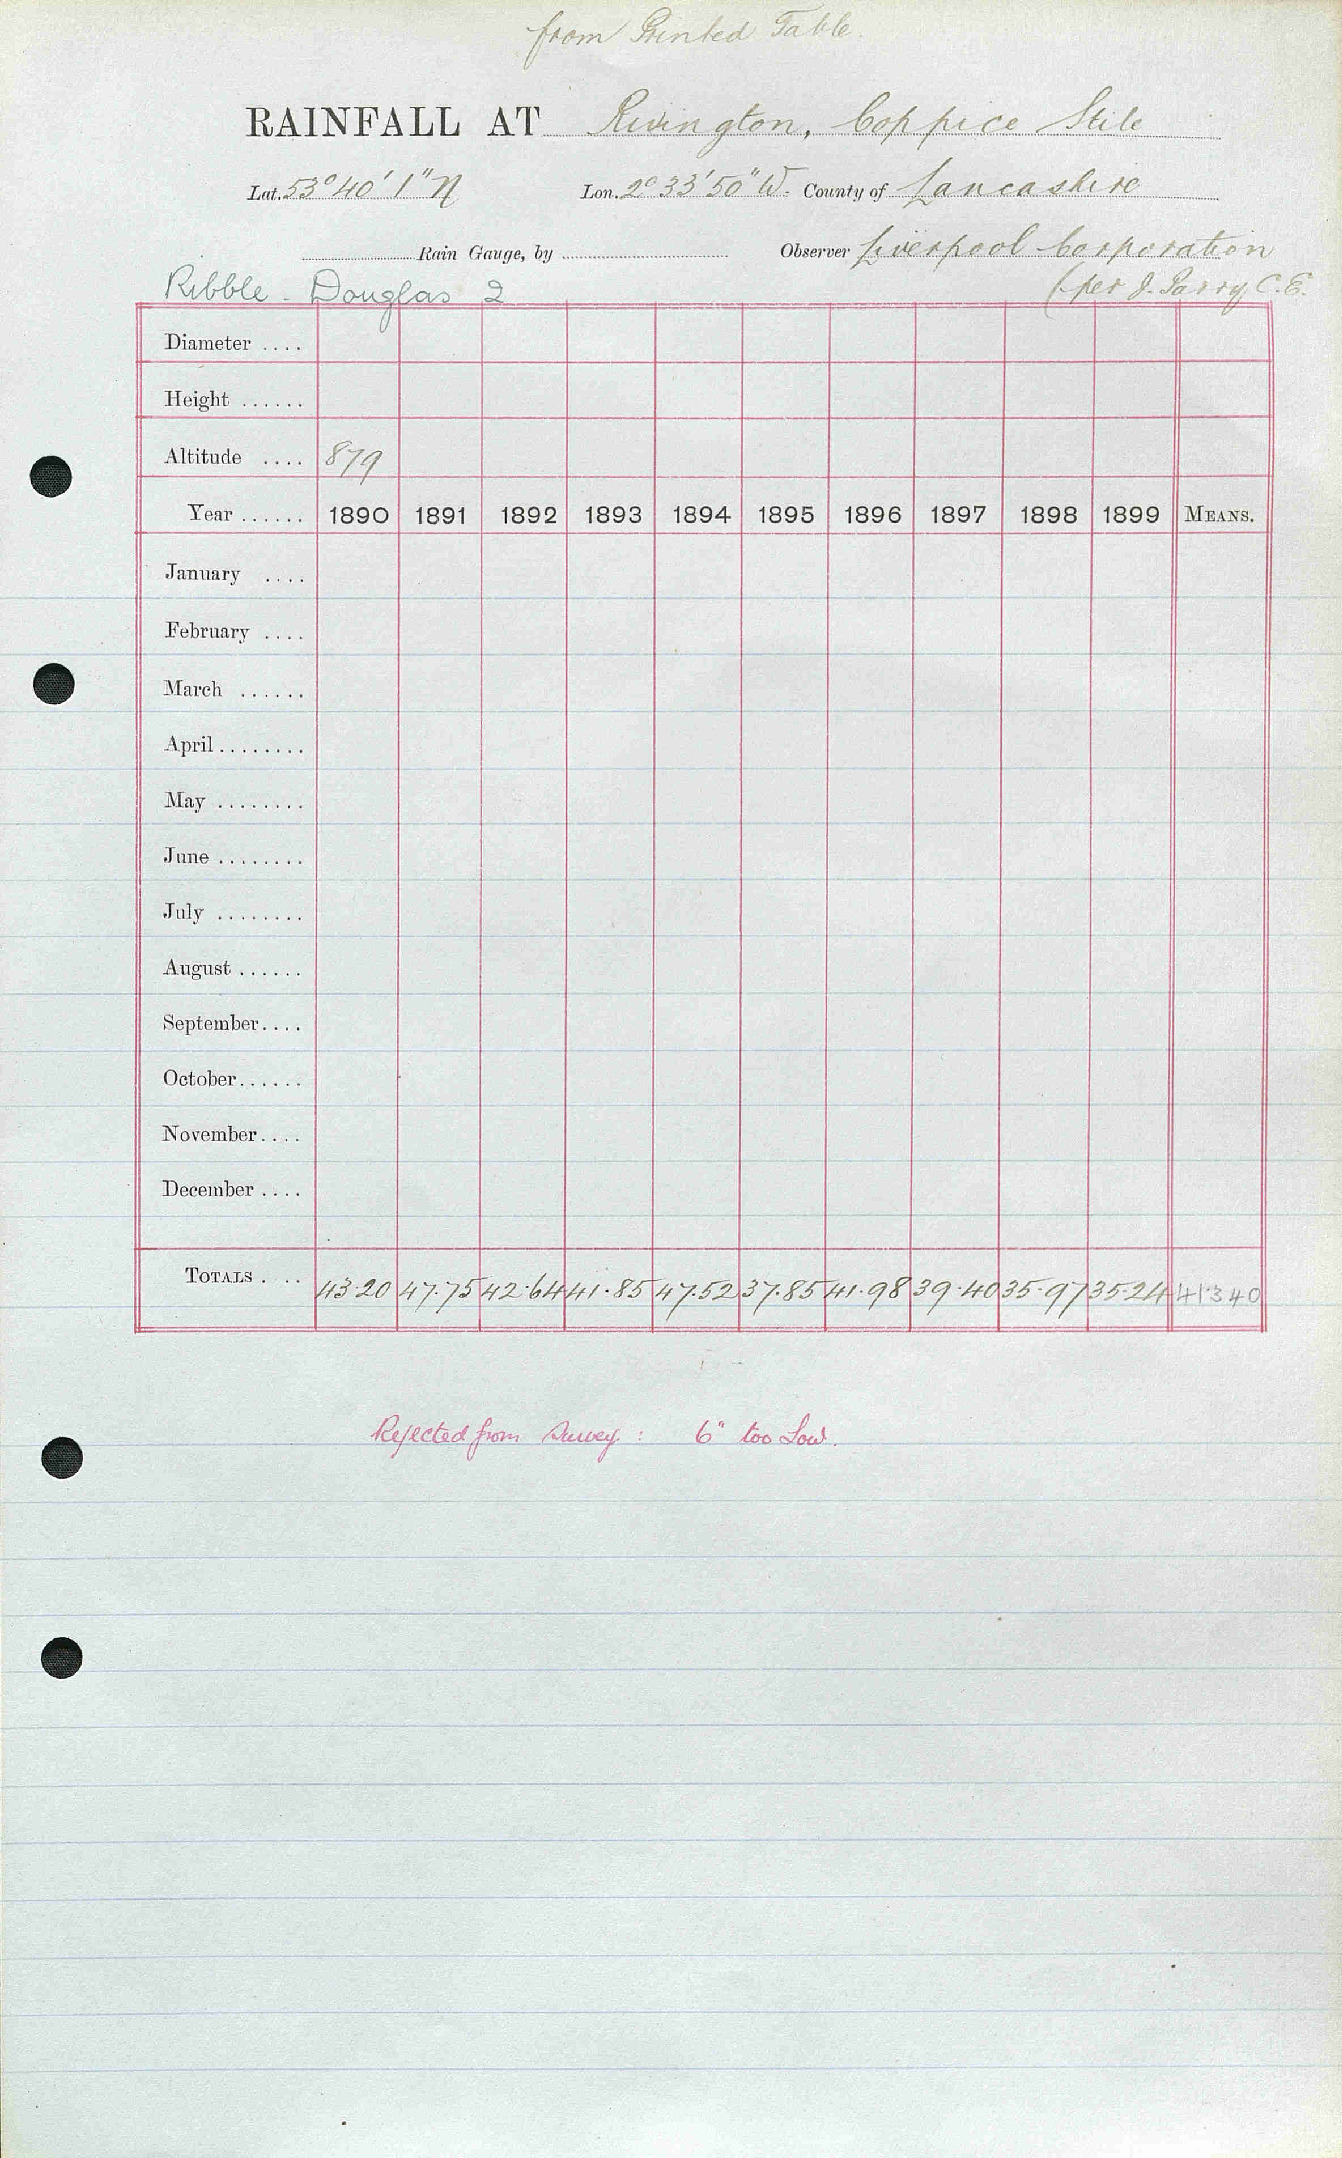 from Printed Table.
RAINFALL AT Rivington, Coppice Stile
Lat. 53° 40' 1" N Lon. 2° 33' 50" W. County of Lancashire
Rain Gauge, by Observer Liverpool Corporation
Ribble - Douglas 2 (per J. Parry C.E.
Diameter ....
Height ......
Altitude .... 879
Year ...... 1890 1891 1892 1893 1894 1895 1896 1897 1898 1899 MEANS.
January ....
February ....
March ......
April ........
May ........
June ........
July ........
August ......
September....
October......
November....
December ....
TOTALS .... 43·20 47·75 42·64 41·85 47·52 37·85 41·98 39·40 35·97 35·24 41340
Rejected from Survey : 6" too Low.